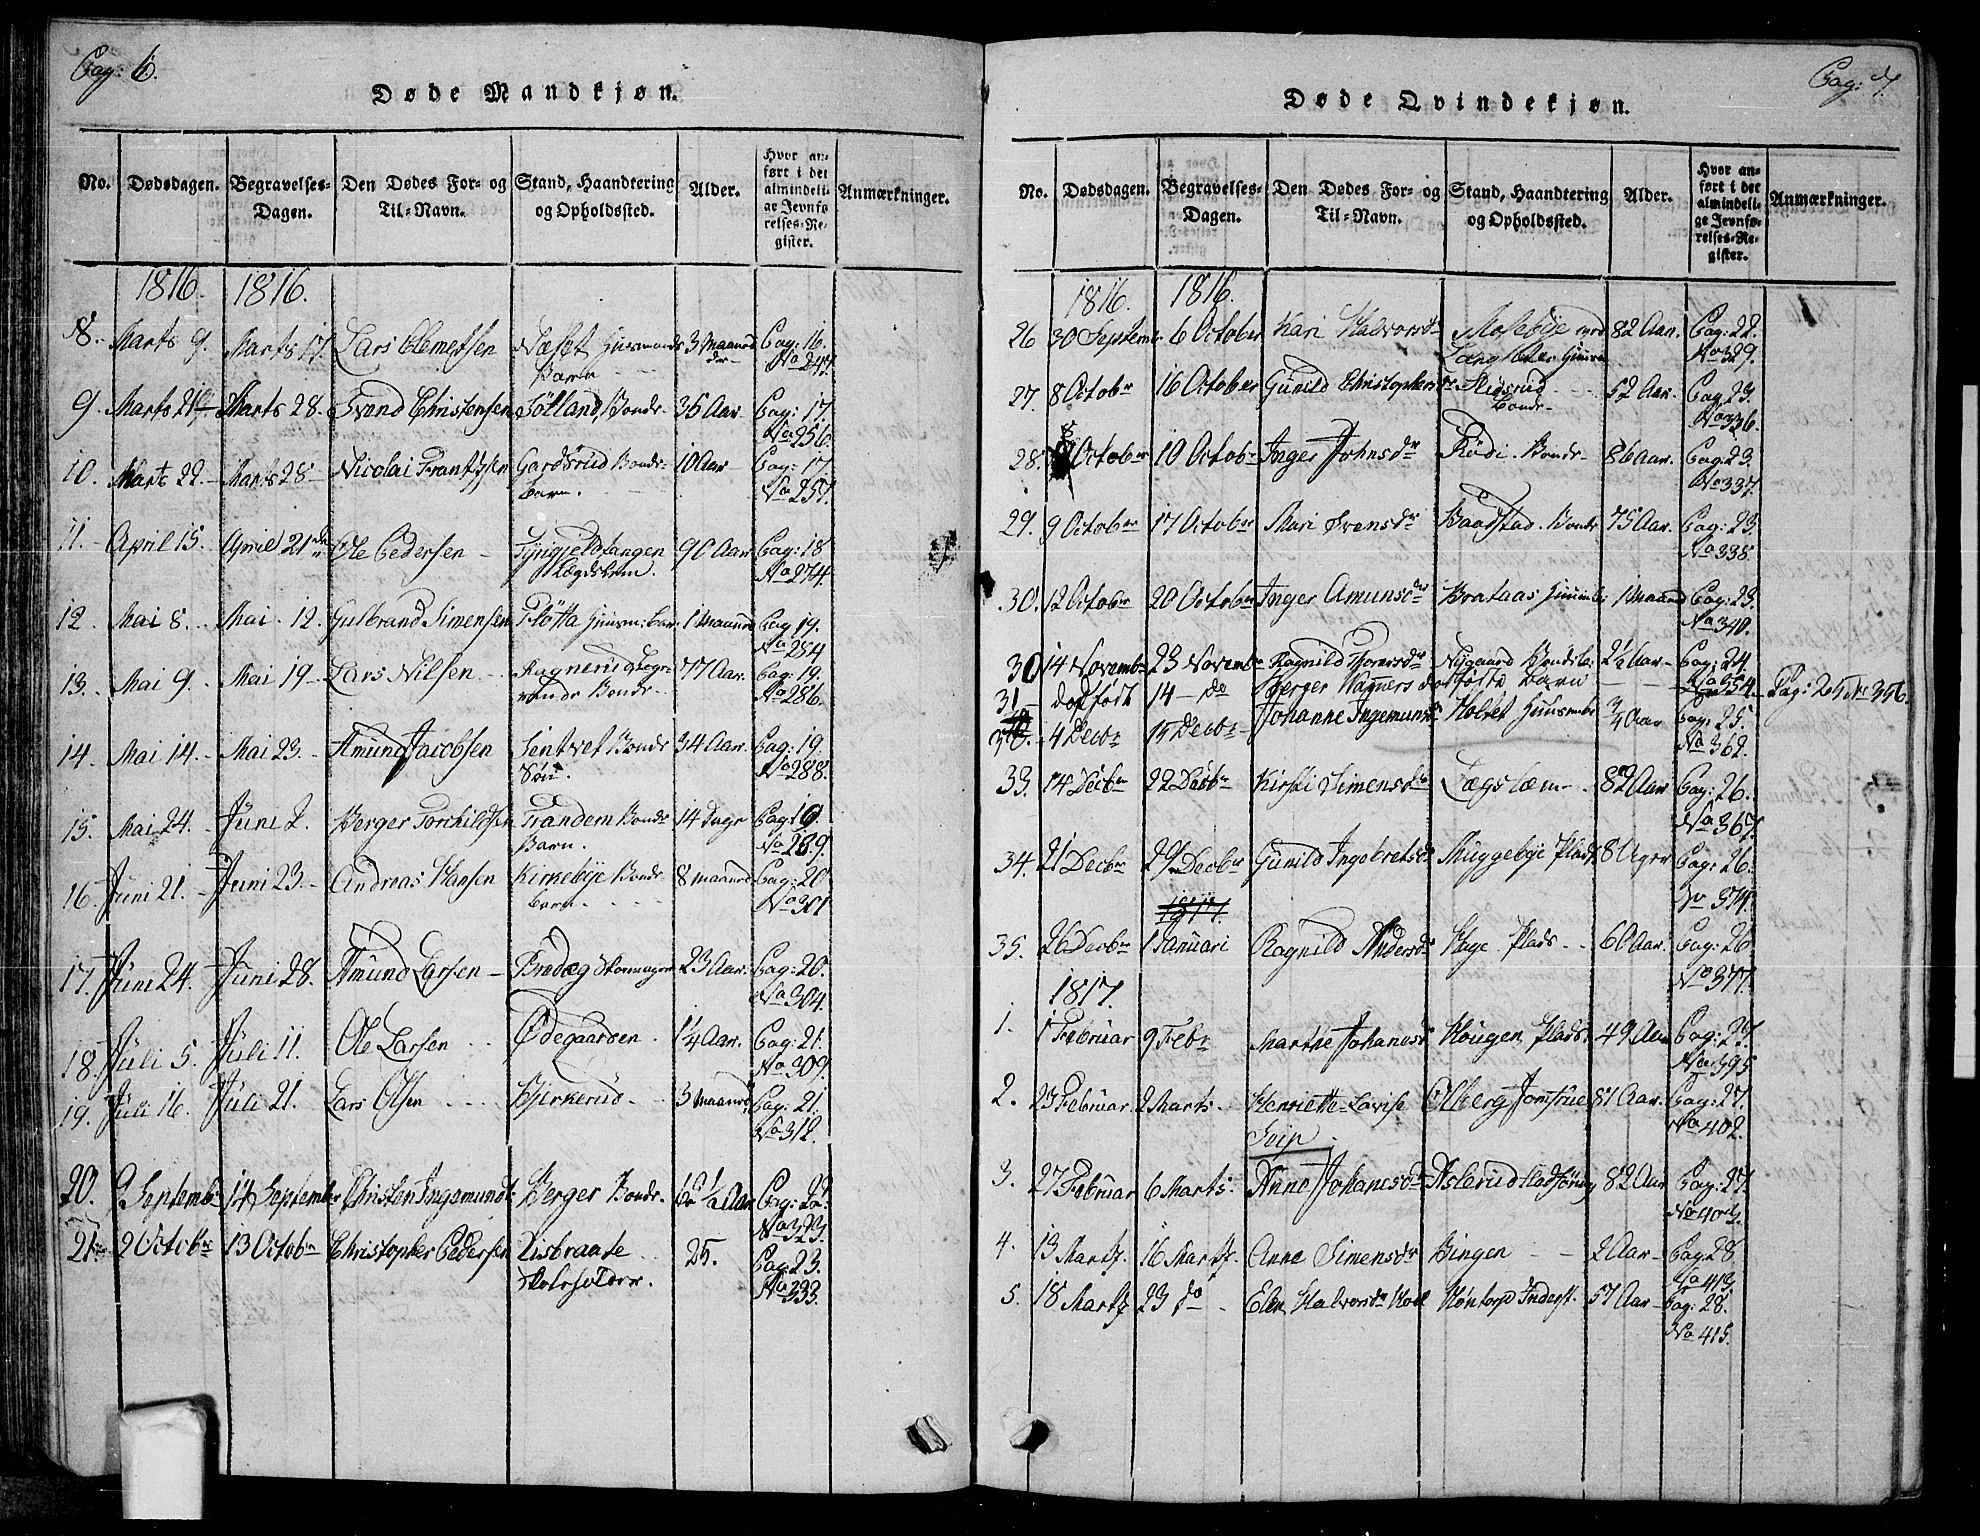 Pag: 6.
Døde Mandkjøn.
No. Dødsdagen. Begravelses-Dagen. Den Dødes For- og Til-Navn. Stand, Haandtering og Opholdssted. Alder. Hvor anført i det almindeliar Jevnførelses-Register. Anmærkninger.
1816. 1816.
8. Marts 9. Marts 17. Lars Clemetsen Næset Huusmands Barn 3 Maaned Pag: 16. No 247.
9. Marts 21 Marts 28. Svend Christensen Sötland Bonde 35 Aar Pag: 17. No 256.
10. Marts 22. Marts 28 Nicolai Frantzsen Gardsrud Bonde Barn. 10 Aar Pag: 17. No 257.
11. April 15. April 21 Ole Pedersen Lægdslem. 90 Aar Pag: 18 No 274.
12. Mai 8. Mai 12. Gulbrand Simensen Flötta Huusm: Barn 1 Maaned Pag 19. No 284
13. Mai 9. Mai 19 Lars Nilsen Ragnerud Bonde 77 Aar. Pag: 19. No 286.
14. Mai 14. Mai 23. Amund Jacobsen Sentvet Bonde Søn. 34 Aar. Pag: 19. No 288.
15. Mai 24. Juni 2. Berger Torchildsen Trandem Bonde Barn. 14 Dage Pag: 19. No 289.
16. Juni 21. Juni 23. Andreas Hansen Kirkebye Bonde Barn. 8 Maaned Pag: 20 No 301
17. Juni 24. Juni 28. Amund Larsen Skomager 23 Aar. Pag: 20. No 304.
18. Juli 5. Juli 11. Ole Larsen Ødegaarden. 1/4 Aar. Pag: 21. No 309.
19. Juli 16. Juli 21. Lars Olsen Bjerkerud 3 Maaned Pag: 21. No 312.
20. 9 Septembr 14 September Christen Ingemunds: Berger Bonde. 6 1/2 Aar Pag: 22. No 323.
21. 2 Octobr 13 Octobr Christopher Pedersen Lisbraate Skoleholder. 25. Pag: 23. No 333.
Pag: 7.
Døde Qvindekjøn.
No. Dødsdagen. Begravelses-Dagen. Den Dødes For- og Til-Navn. Stand, Haandtering og Opholdssted. Alder. Hvor anført i det almindelige Jevnførelses-Register. Anmærkninger.
1816. 1816.
26 30 Septembr 6 October Kari Halvorsdr Mosebye 82 Aar. Pag: 22. No 329.
27. 8 Octobr 16 October Gunild Christophersdr Stigsrud Bonde 52 Aar. Pag 23. No 336.
28. Octobr 10 Octobr Inger Johnsdr Rödi Bonde 86 Aar. Pag: 23. No 337.
29. 9 Octobr 17 Octobr Mari Svensdr Baadstad Bonde 75 Aar. Pag: 23. No 338.
30. 12 Octobr 20 Octobr Inger Amunsdr Brataas 1 Maaned Pag: 23. No 340.
30 14 Novembr 23 Novembr Ragnild Nygaard 2 1/2 Aar Pag: 24. No 354.
31 dødfødt 14 do Berger Wagners dødfødte Barn Pag: 25 Nr 356.
4 Decbr 15 Decbr Johanne Ingemunsdr Holtet 3/4 Aar Pag: 25. No 362.
33. 14 Decbr 22 Decbr Kirsti Simensdr Lægslem 82 Aar Pag: 26. No 367.
34. 21 Decbr 29 Decbr Gunild Ingebretsdr Muggebye Plads 8 Uger Pag: 26. No 374.
1817.
35. 26 Decbr 1 Januari Ragnild Andersdr Hage Plads 60 Aar. Pag: 26 No 377.
1817.
1. 1 Februar 9 Febr Marthe Johansdr Hougen Plads 49 Aar Pag: 27. No 395
2. 23 Februar 2 Marts. Henriette Lovise Svip Olberg Jomfrue 81 Aar. Pag: 27. No 402.
3. 27 Februar 6 Marts. Anne Johanesdr Aslerud 82 Aar Pag: 27. No 403.
4. 13 Martz. 16 Martz. Anne Simensdr Bingen 2 Aar Pag 28 No 413.
5. 18 Martz 23 do Elen Halvorsdr Höntorp Inderst. 57 Aar Pag: 28. No 415.